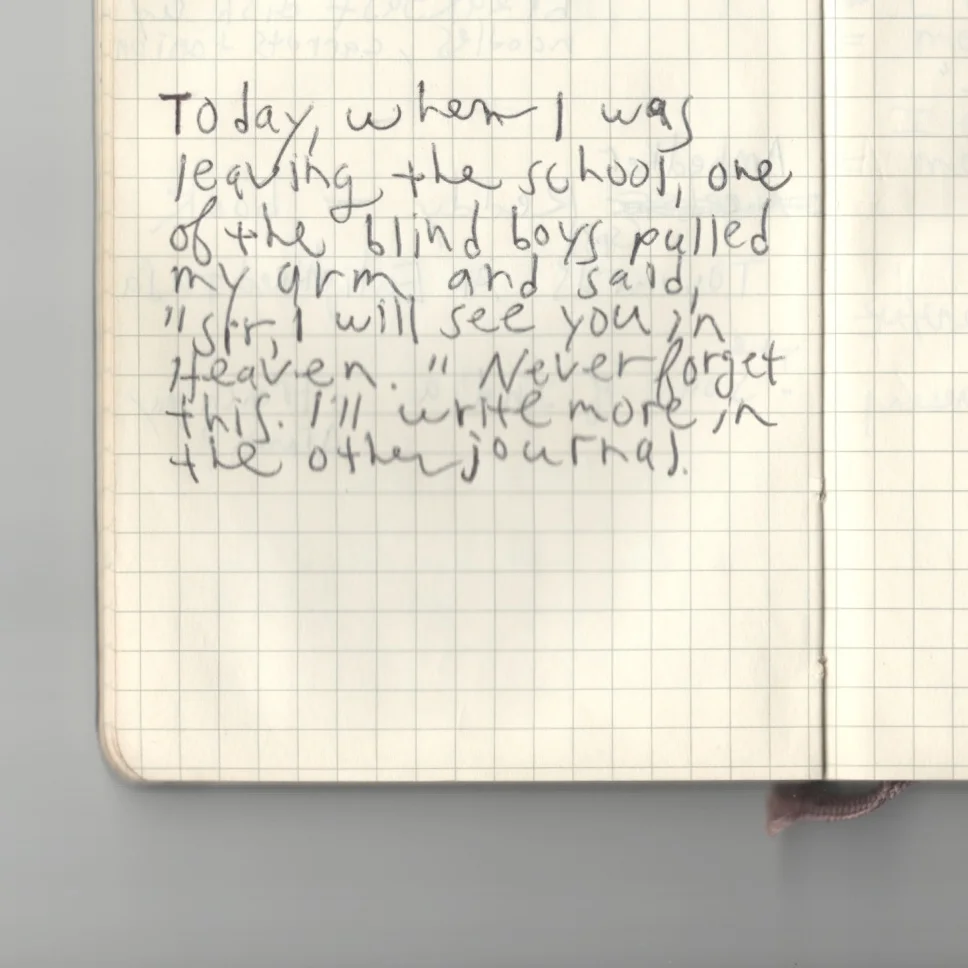 Today, when I was
leaving the school, one
of the blind boys pulled
my arm and said,
"Sir, I will see you in
Heaven." Never forget
this. I'll write more in
the other journal.